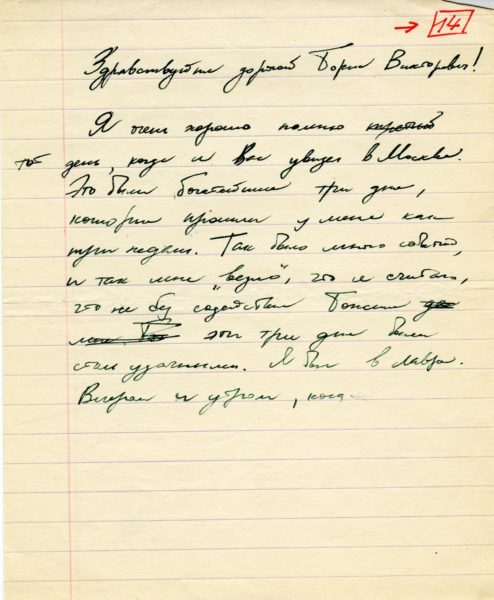 → 14
Здравствуйте дорогой Борис Викторович!
Я очень хорошо помню
тот день, когда я Вас увидел в Москве.
Это были богатейшие три дня,
которые прошли у меня как
три недели. Так было много событий,
и так мне „везло", что я считаю,
что не без содействия
эти три дня были
столь удачными. Я был в Лавре.
Вечером и утром, когда